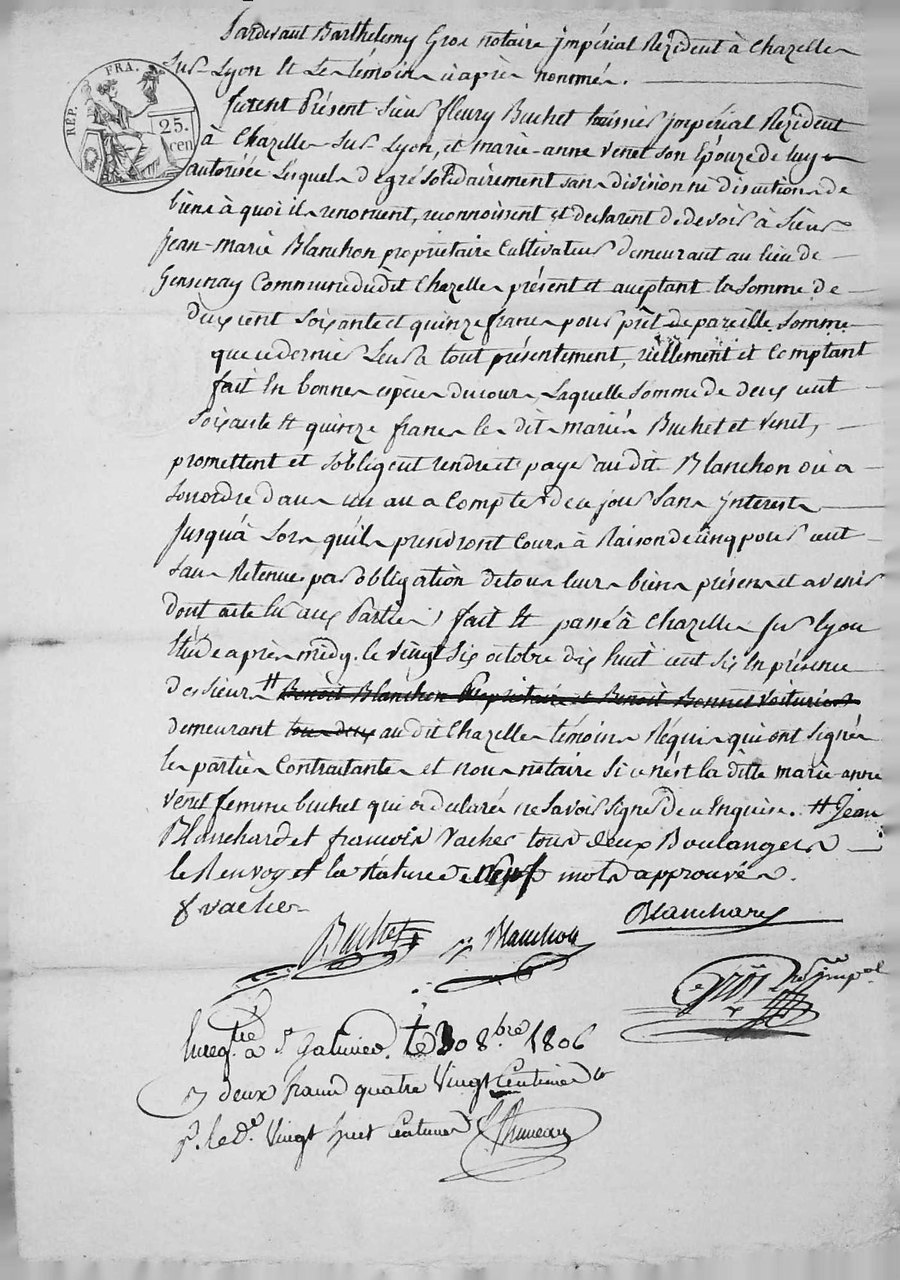 Pardevant Barthelemy Gros notaire jmpérial Rezident à Chazelle
Sur Lyon Et Les témoins ci après nommés.
RÉP. FRA.
25.
cen
furent Présent Sieur fleury Buchet huissier jmpérial Rezident
à Chazelles Sur Lyon, et marie-anne Venet son Epouze de luy
autorisée Lesquels de gré solidairement sans division ni discution de
biens à quoi ils renoncent, reconnoissent et declarent de devoir à Sieur
Jean-marie Blanchon propriétaire Cultivateur demeurant au lieu de
Commune du dit Chazelles présent et aceptant la Somme de
deux cent soixante et quinze francs pour prêt de pareille Somme
que ce dernier Leur a tout présentement, réellement et Comptant
fait En bonnes espèces du cour, Laquelle Somme de deux cent
soixante Et quinze francs les dit mariés Buchet et Venet,
promettent et s'obligent rendre et payer au dit Blanchon ou a
son ordre dans un an a Compter de ce jour Sans jnterest
jusqu'à Lors qu'ils prendront Cours à Raison de Cinq pour cent
sans Retenue par obligation de tous leurs biens présens et avenir
dont acte lu aux Parties, fait Et passé à Chazelles Sur lyon
Etude après midy. le vingt six octobre dix huit cent six En présence
des sieurs # Benoit Blanchon Propriétaire et Benoit Bonnet Voiturier
demeurant tous deux au dit Chazelles témoins Réquis qui ont signé
les parties Contractantes et nous notaire Si ce n'est la ditte marie-anne
venet femme buchet qui a declaré ne savoir signer de ce Enquise. # Jean
Blanchard et francois Vacher tous deux Boulangers
le Renvoy et la Rature de neuf mots approuvés.
f vacher
Buchet Blanchon Blanchard
Gros Nre jmpal
Enregtré à St Galmier. Le 30 8bre 1806
deux francs quatre Vingt Centimes
pr. le de. Vingt huit Centimes